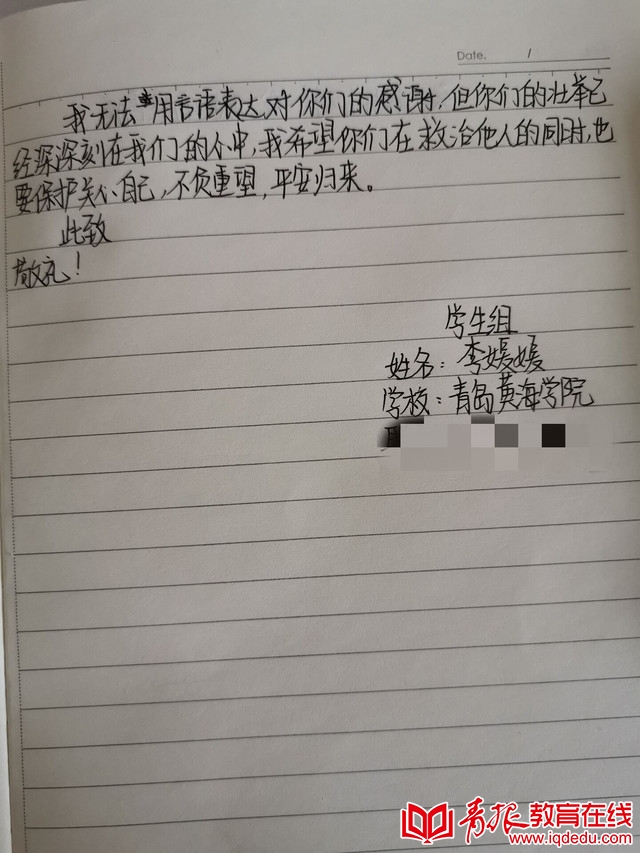 Date. /
我无法用言语表达对你们的感谢,但你们的壮举已
经深深刻在我们的心中,我希望你们在救治他人的同时,也
要保护关心自己,不负重望,平安归来。
此致
敬礼!
学生组
姓名:李媛媛
学校:青岛黄海学院
青报教育在线
www.iqdedu.com